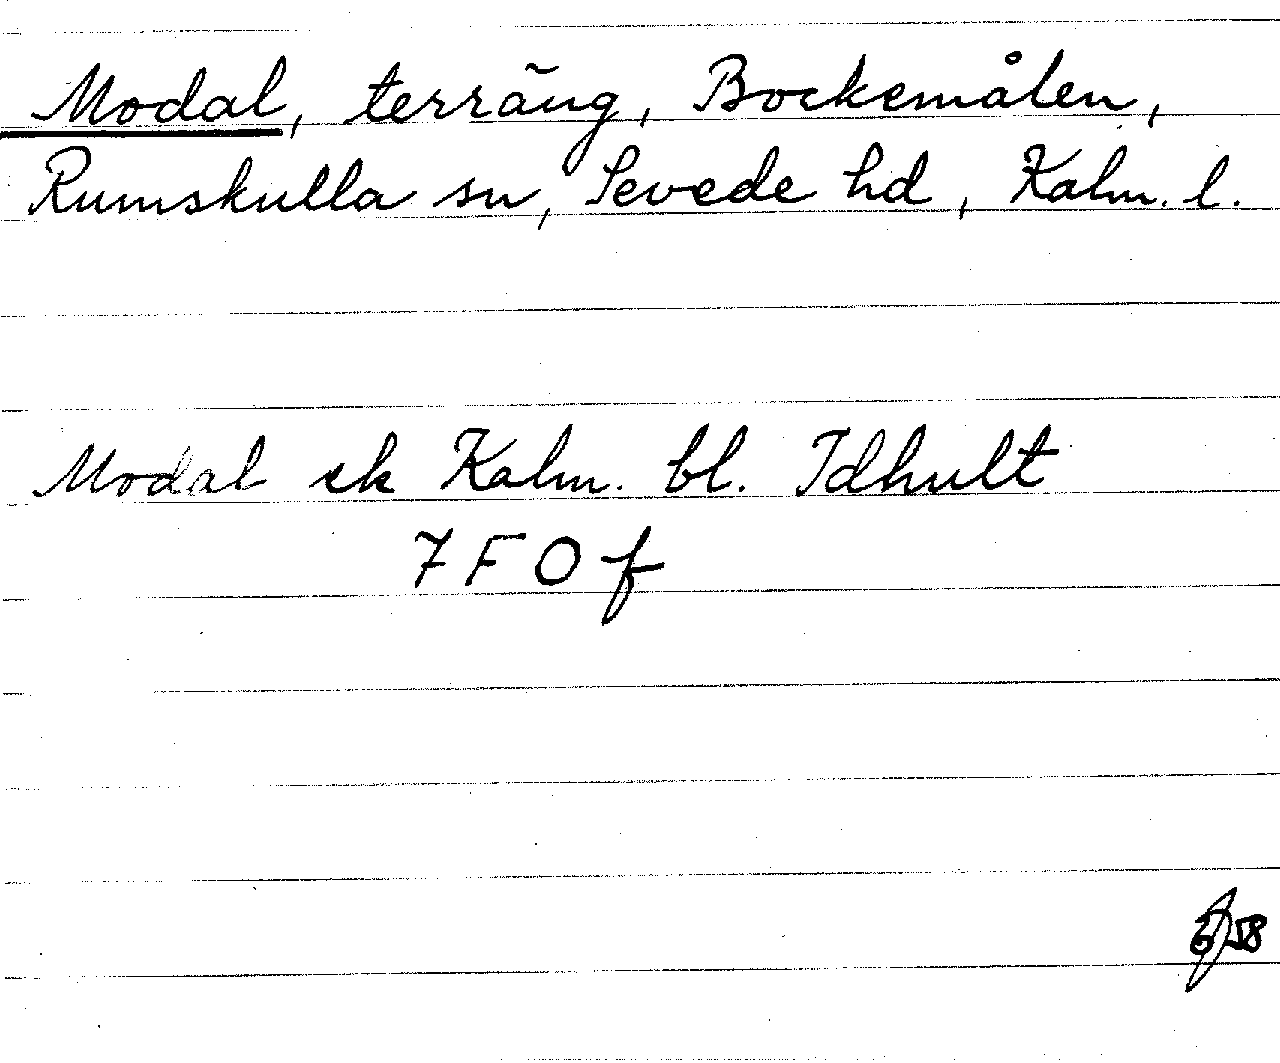 Modal, terräng, Bockemålen,
Rumskulla sn, Sevede hd, Kalm. l.
Modal ek Kalm. bl. Idhult
7 F O f